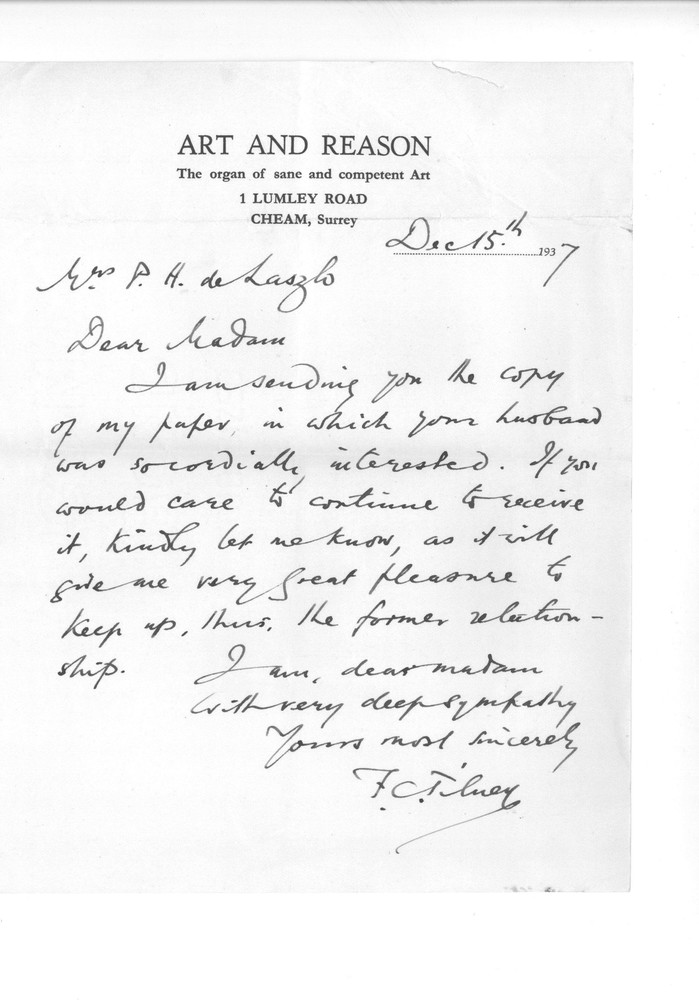 ART AND REASON
The organ of sane and competent Art
1 LUMLEY ROAD
CHEAM, Surrey
Dec 15.th 1937
Mrs P. H. de Laszlo
Dear Madam
I am sending you the copy
of my paper, in which your husband
was so cordially interested. If you
would care to continue to receive
it, kindly let me know, as it will
give me very great pleasure to
keep up, thus, the former relation-
ship. I am, dear madam
with very deep sympathy
Yours most sincerely
F.C. Tilney